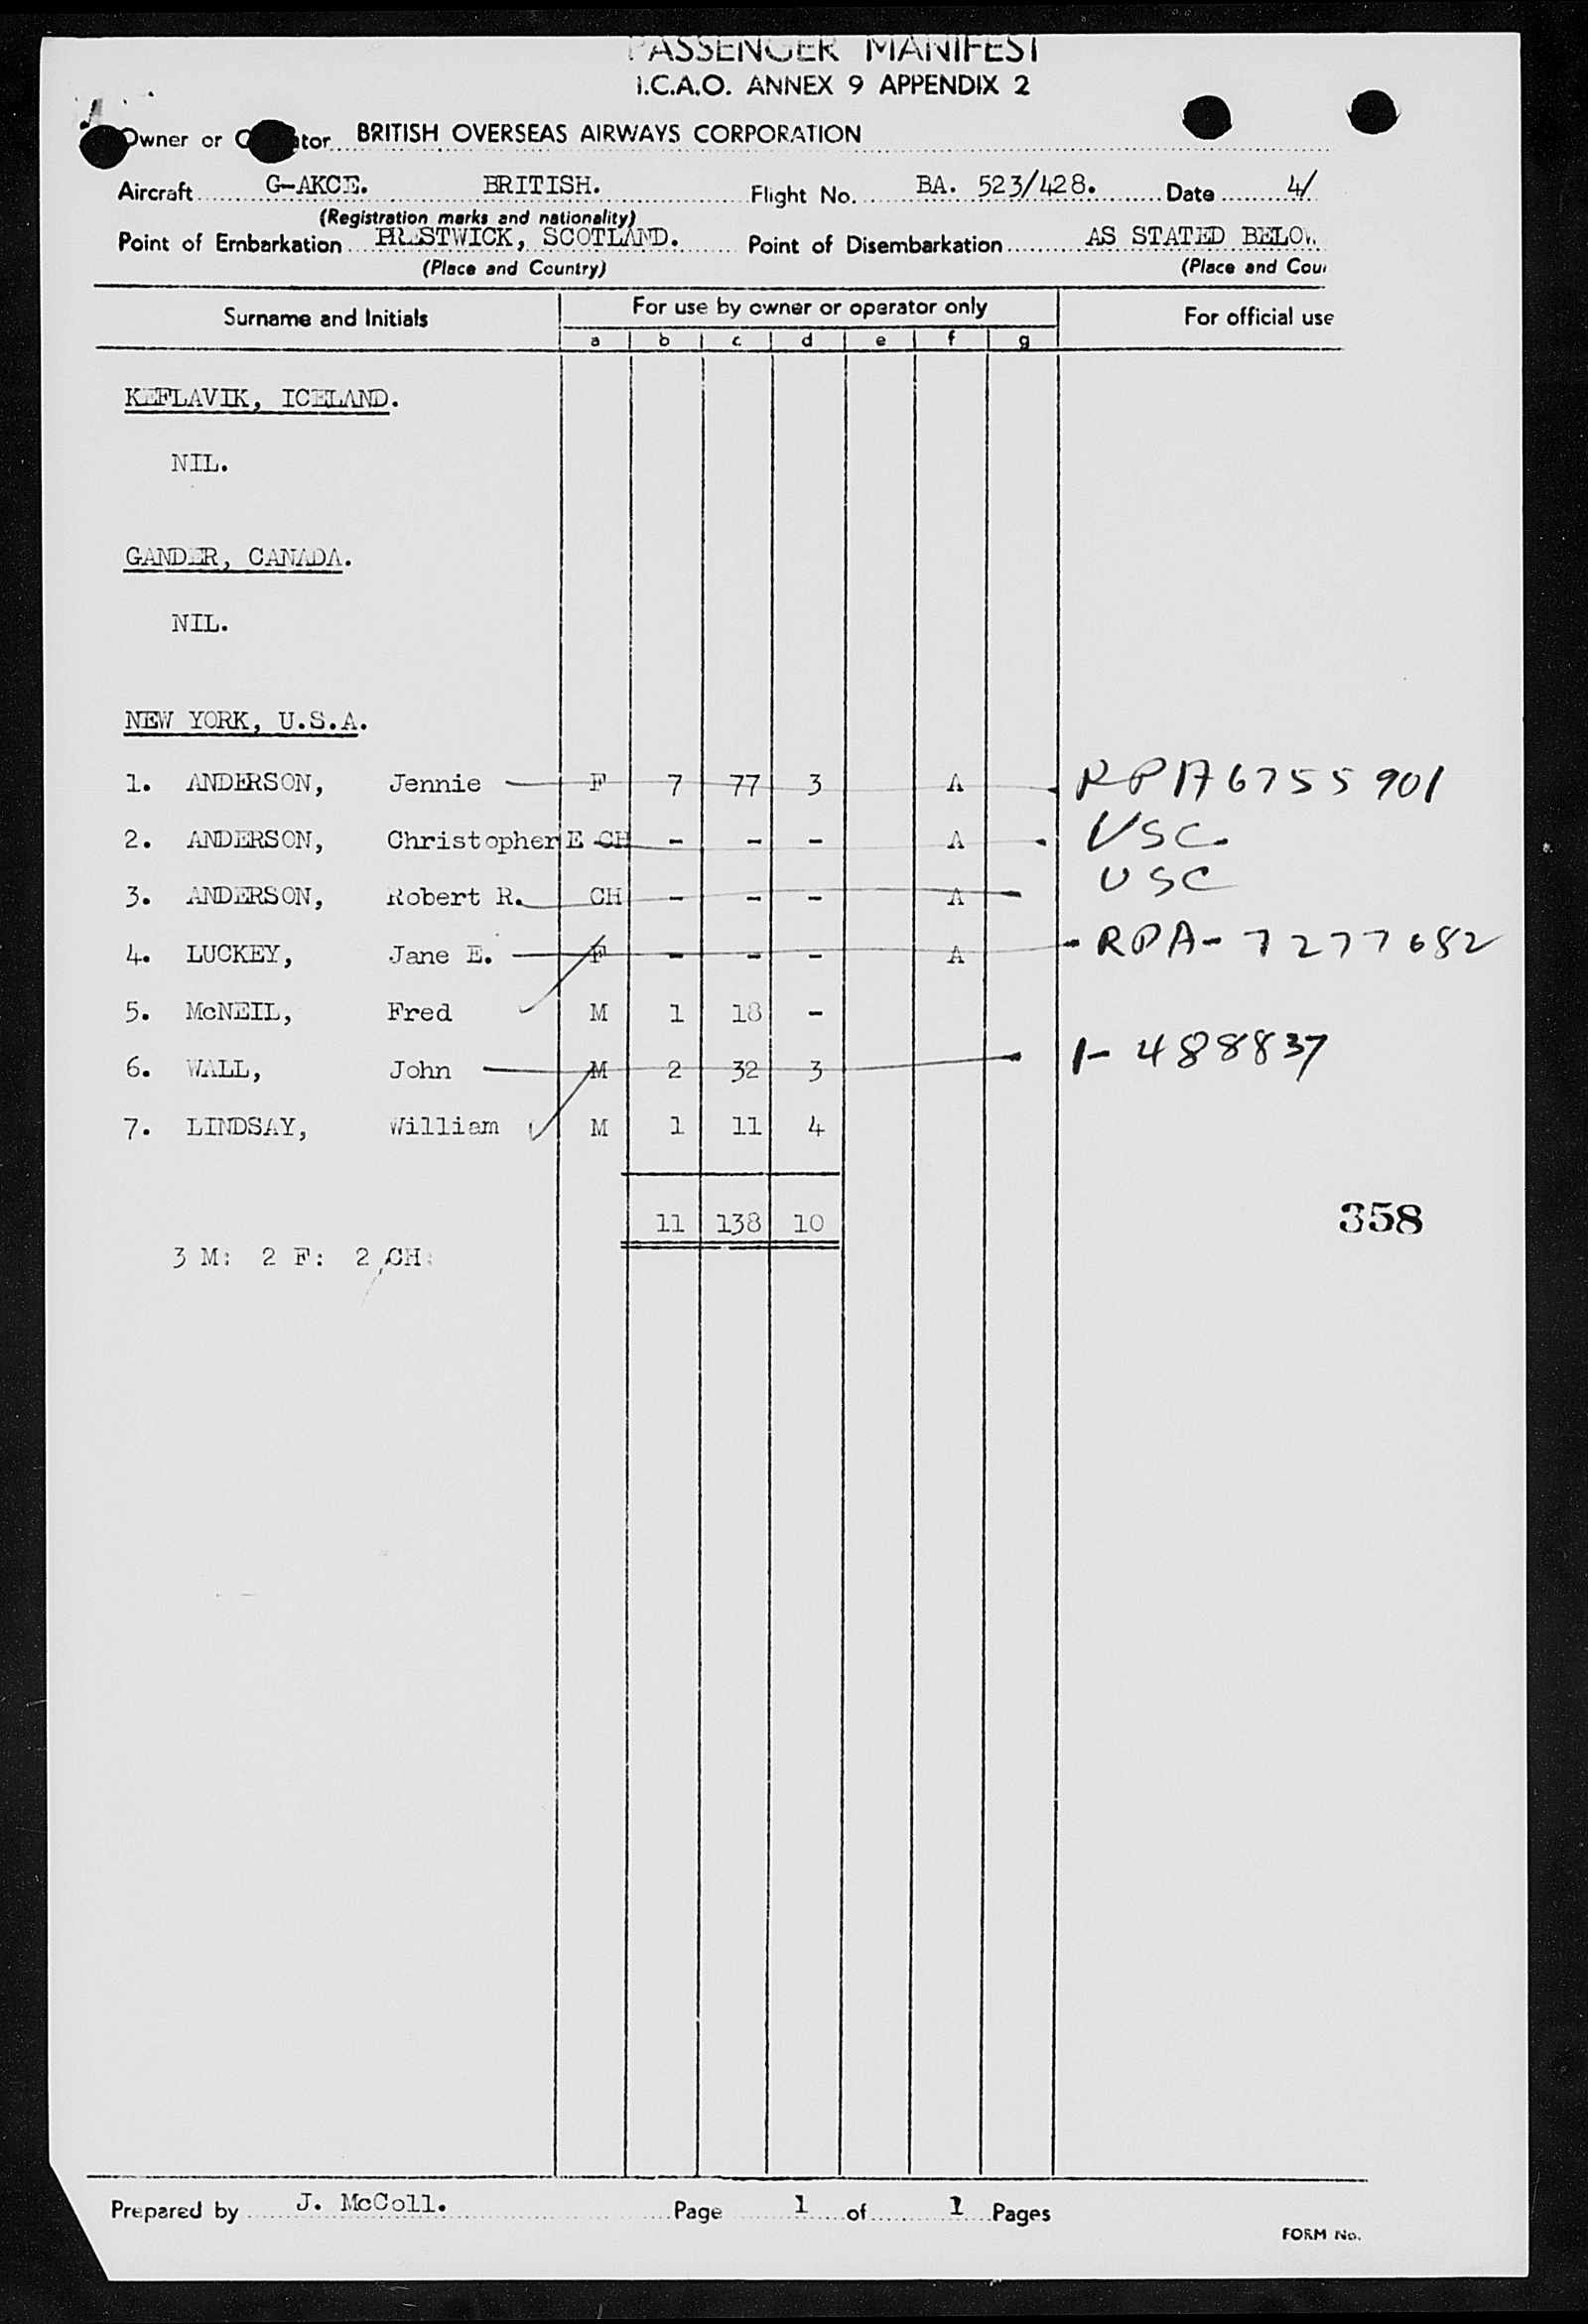 PASSENGER MANIFEST
I.C.A.O. ANNEX 9 APPENDIX 2
Owner or O tor BRITISH OVERSEAS AIRWAYS CORPORATION
Aircraft G-AKCE. BRITISH. Flight No. BA. 523/428. Date 4/
(Registration marks and nationality)
Point of Embarkation PRESTWICK, SCOTLAND. Point of Disembarkation AS STATED BELOW
(Place and Country) (Place and Cou
Surname and Initials For use by owner or operator only For official use
a b c d e f g
KEFLAVIK, ICELAND.
NIL.
GANDER, CANADA.
NIL.
NEW YORK, U.S.A.
1. ANDERSON, Jennie F 7 77 3 A RPA 6755901
2. ANDERSON, Christopher E CH - - - A USC
3. ANDERSON, Robert R. CH - - - A USC
4. LUCKEY, Jane E. F - - - A RPA-7277682
5. McNEIL, Fred M 1 18 -
6. WALL, John M 2 32 3 1-488837
7. LINDSAY, William M 1 11 4
11 138 10
358
3 M: 2 F: 2 CH:
Prepared by J. McColl. Page 1 of 1 Pages
FORM No.